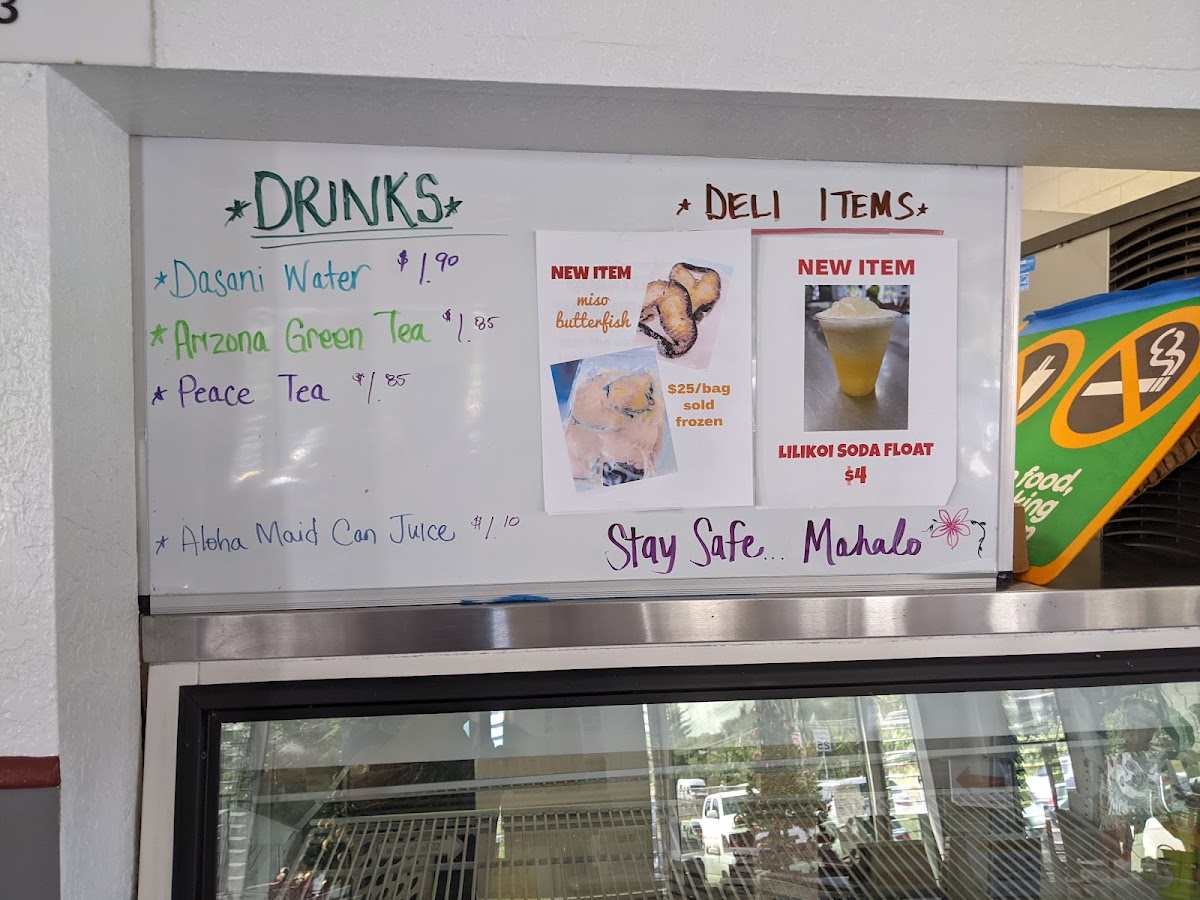 3
*DRINKS*
*Dasani Water $1.90
*Arizona Green Tea $1.85
*Peace Tea $1.85
*Aloha Maid Can Juice $1.10
*DELI ITEMS*
NEW ITEM
miso
butterfish
$25/bag
sold
frozen
NEW ITEM
LILIKOI SODA FLOAT
$4
Stay Safe... Mahalo
food,